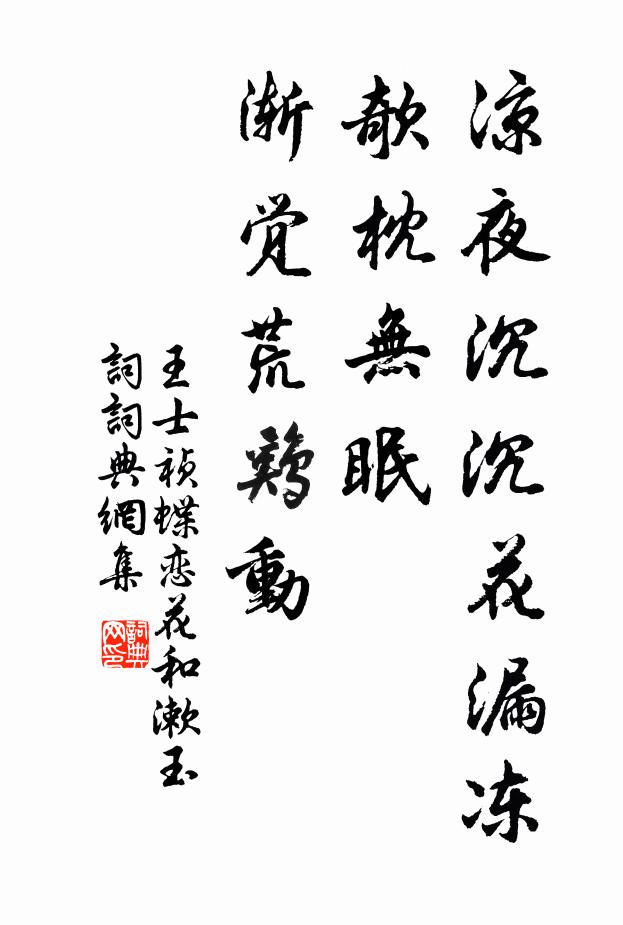 凉夜沉沉花漏冻
欹枕無眠
渐觉荒鷄動
王士祯蝶恋花和漱玉
詞詞典網集
詞典
网印